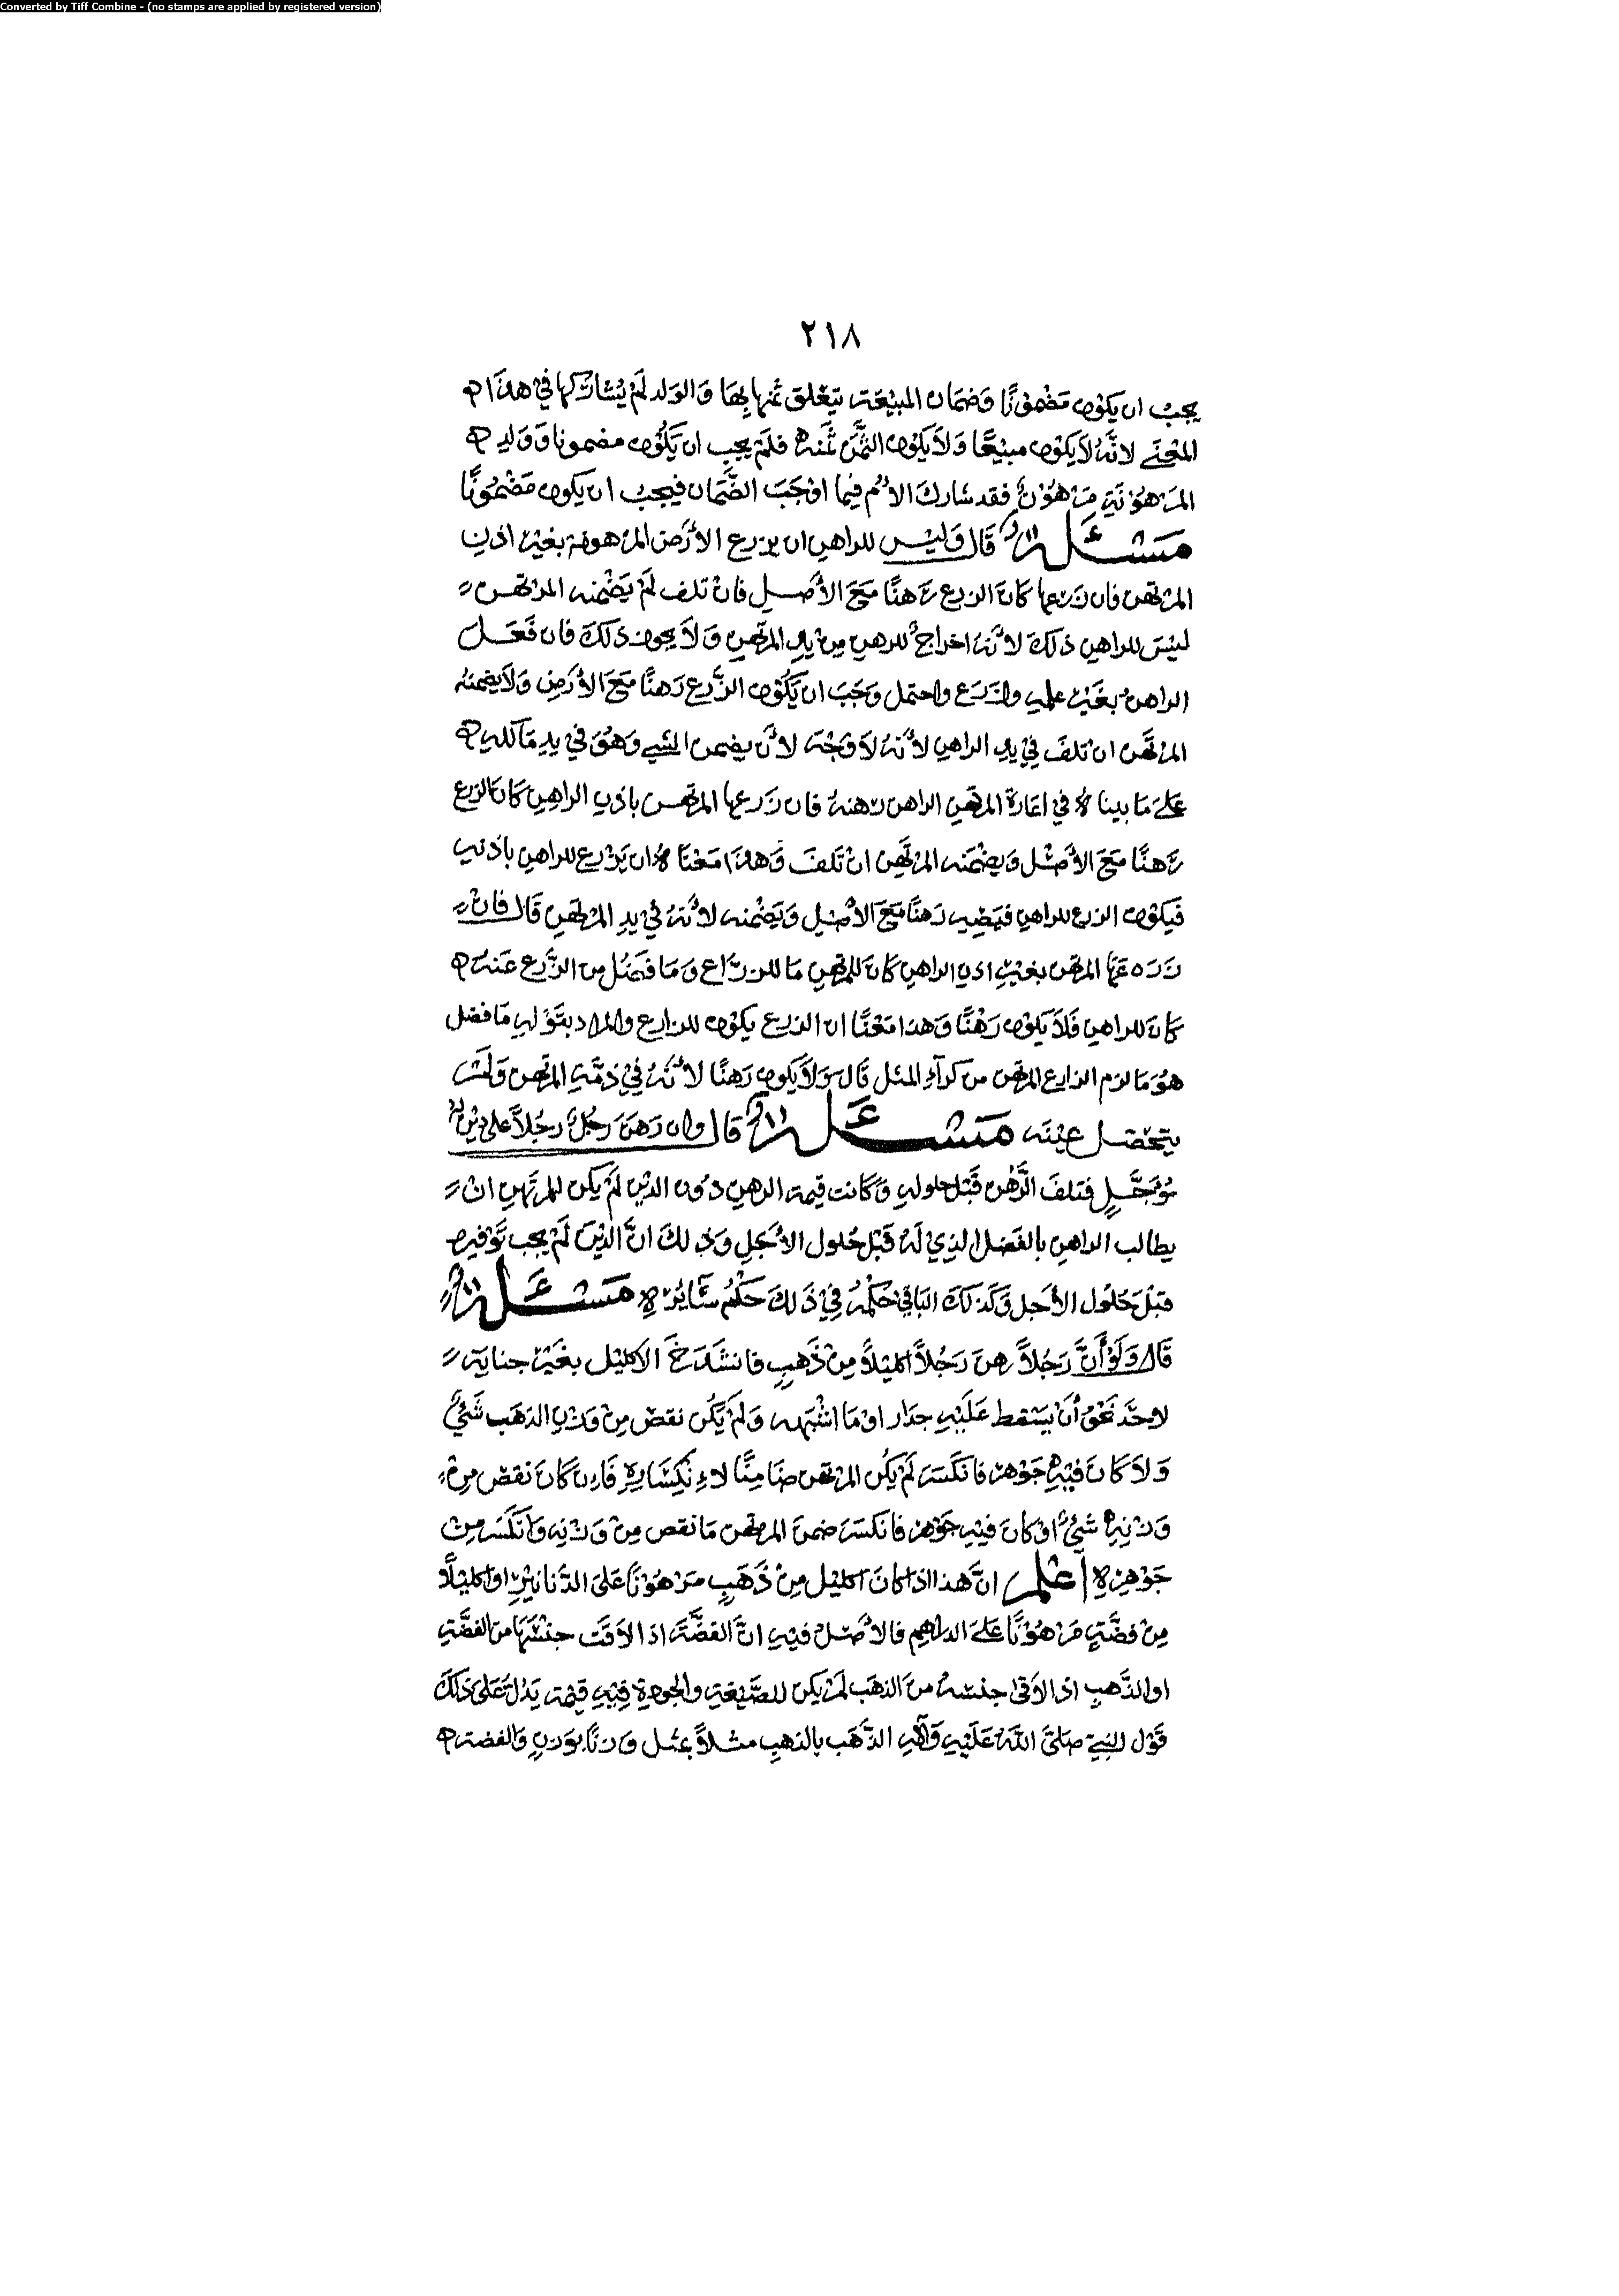 Converted by Tiff Combine - (no stamps are applied by registered version)
٢١٨
يجب ان يكون مضمونًا وَضمَان المبيْعَة يتعْلق ثمنها بِهَا وَالولد لَمْ يُشاركها فيْ هذَا
المعْنَى لانَّهُ لاَ يكوْن مبيْعًا وَلاَ يكوْن الثمَّن ثمنه فلَمْ يجب ان يَكُوْن مضمونا وَوَلد
المرْهوْنَة مرْهُوْنٌ فقد شارك الأم فيْمَا اوْجَبَ الضَّمَان فيجبُ ان يكون مَضْمُوْنًا
مَسْئَلة قَال وَليْس للراهن ان يزرع الأرْض المرْهونة بغيْر اذن
المرْتهن فان زرَعها كَانَ الزرع رَهنًا مَعَ الأصْل فانْ تلف لَمْ يَضْمنه المرْتهن
ليْسَ للراهن ذلكَ لأنَّه اخراجٌ للرهن مِنْ يد المرتَهن وَلاَ يجوز ذلكَ فان فَعَل
الراهنُ بغَيْر علمه وازرَع واحتمل وَجَبَ ان يَكُوْن الزَّرع رَهنًا مَعَ الأرْض وَلاَ يضمنهُ
المرْتَهن انْ تلفَ فيْ يد الراهن لأنَّهُ لاَ وَجْهَ لأنْ يضمن الشيء وَهُوَ فيْ يد مَالكه
عَلَى مَا بيناهُ في اعَارة المرتهن الراهن رهنهُ فان زَرَعها المرتهن باذن الراهن كَانَ الزرع
رَهنًا مَعَ الأصْل وَيضْمنه المرْتَهن انْ تَلفَ وَهذَا مَعْنَاهُ ان يَزْرع للراهن باذنه
فيَكوْن الزرع للراهن فيَصِيْر رَهنًا مَعَ الأصْل وَيَضْمنه لأنَّهُ فيْ يدِ المرْتَهن قَال فانْ
زرَعهَا المرتهن بغيْر اذن الراهن كَانَ للمرتهن مَا للزرَّاع وَمَا فَضُل من الزَّرع عَنهُ
كانَ للراهن فَلاَ يَكوْن رَهْنًا وَهذا مَعْنَا ان الزرع يكوْن للزارع والمراد بقَوْله مَا فضل
هُوَ مَا لزم الزارع المرتهن من كرَآء المثل قَال وَلاَ يَكون رَهنًا لأنَّهُ فيْ ذمَّةِ المرتهن وَلَمْ
يتحْصل عيْنَه مَسْئَلة قَال وان رَهَنَ رَجُلٌ رجُلاً على ديْن لهُ
مُؤَجَّلٍ فتلفَ الرَّهْن قَبْل حلوله وَكَانت قيمة الرهن دُوْن الديْن لَمْ يكن للمرتَهن انْ
يطالب الراهن بالفَضل الذي لهُ قبْل حُلول الأجَلِ وَذلكَ انَّ الدَّيْنَ لَمْ يجب تَوْفيره
قبْل حَلُول الأجل وَكَذلكَ البَاقيْ حكمهُ فِيْ ذَلكَ حكْمُ سَآئرهِ مَسْئَلة
قَال وَلَوْ أَنَّ رَجُلاً رهنَ رَجُلاً اكليْلاً مِنْ ذَهَبٍ فانشَدَخَ الاكليْل بغَيْر جنايَة
لأحَدٍ نَحْوُ أنْ يسْقط عَلَيْهِ جدَار اوْ مَا اشْبَهه وَلَمْ يَكُن نقصْ مِنْ وَزن الذهَب شَيْءٌ
وَلاَ كَانَ فيْهِ جَوْهر فانكَسَر لَمْ يَكُن المرْتهن ضَامِنًّا لاِءنْكِسَارِهِ فَاءن كَانَ نقصَ مِنْ
وَزْنِهِ شَيْءٌ اوْ كَانَ فيْهِ جَوْهر فانكسَرَ ضمنَ المرتهن مَا نقص مِنْ وَزْنِه وَانكَسَر مِنْ
جَوْهرهِ اعْلم انَّ هذا اذا كانَ اكليْل مِنْ ذَهَبٍ مَرْهُوْنًا عَلَى الدَّنانيْر اوْ اكليْلاً
مِنْ فضَّةٍ مَرْهُوْنًا عَلَى الدراهم فالأصْل فيْهِ انَّ الفضَّةَ اذا لاَقت جنسَهَا من الفضَّةِ
او الذَّهبِ اذا لاَقى جنسَهُ منَ الذهَب لَمْ يَكن للصَّيْغَةِ والجوْدة فيْهِ قيْمَة يَدُلُّ عَلَى ذلكَ
قَوْل النبي صَلَّى اللَّهُ عَلَيْهِ وَآلِهِ الذَّهَب بالذهبِ مثلاً بمثل وزنًا بوَزنٍ وَالفضة